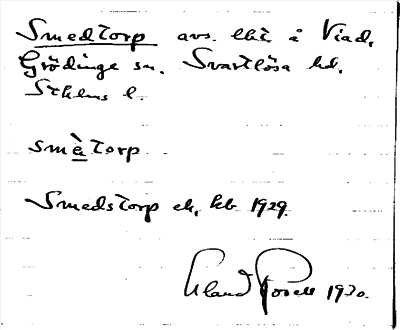 Smedtorp avs. lht å Viad,
Grödinge sn. Svartlösa hd.
Sthlms l.
smètorp
Smedstorp ek, kb 1929.
Erland Rosell 1930.